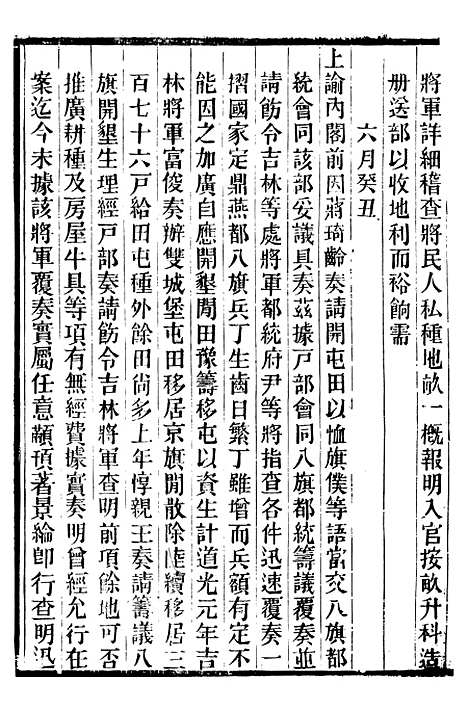 將軍詳細稽查將民人私種地畝一概報明入官按畝升科造
册送部以收地利而裕餉需
六月癸丑
上諭內閣前因蔣琦齡奏請開屯田以恤旗僕等語當交八旗都
統會同該部妥議具奏茲據戶部會同八旗都統籌議覆奏並
請飭令吉林等處將軍都統府尹等將指查各件迅速覆奏一
摺國家定鼎燕都八旗兵丁生齒日繁丁雖增而兵額有定不
能因之加廣自應開墾閒田豫籌移屯以資生計道光元年吉
林將軍富俊奏辦雙城堡屯田移居京旗閒散除陸續移居三
百七十六戶給田屯種外餘田尚多上年惇親王奏請籌議八
旗開墾生理經戶部奏請飭令吉林將軍查明前項餘地可否
推廣耕種及房屋牛具等項有無經費據實奏明曾經允行在
案迄今未據該將軍覆奏實屬任意顢頇著景綸卽行查明迅